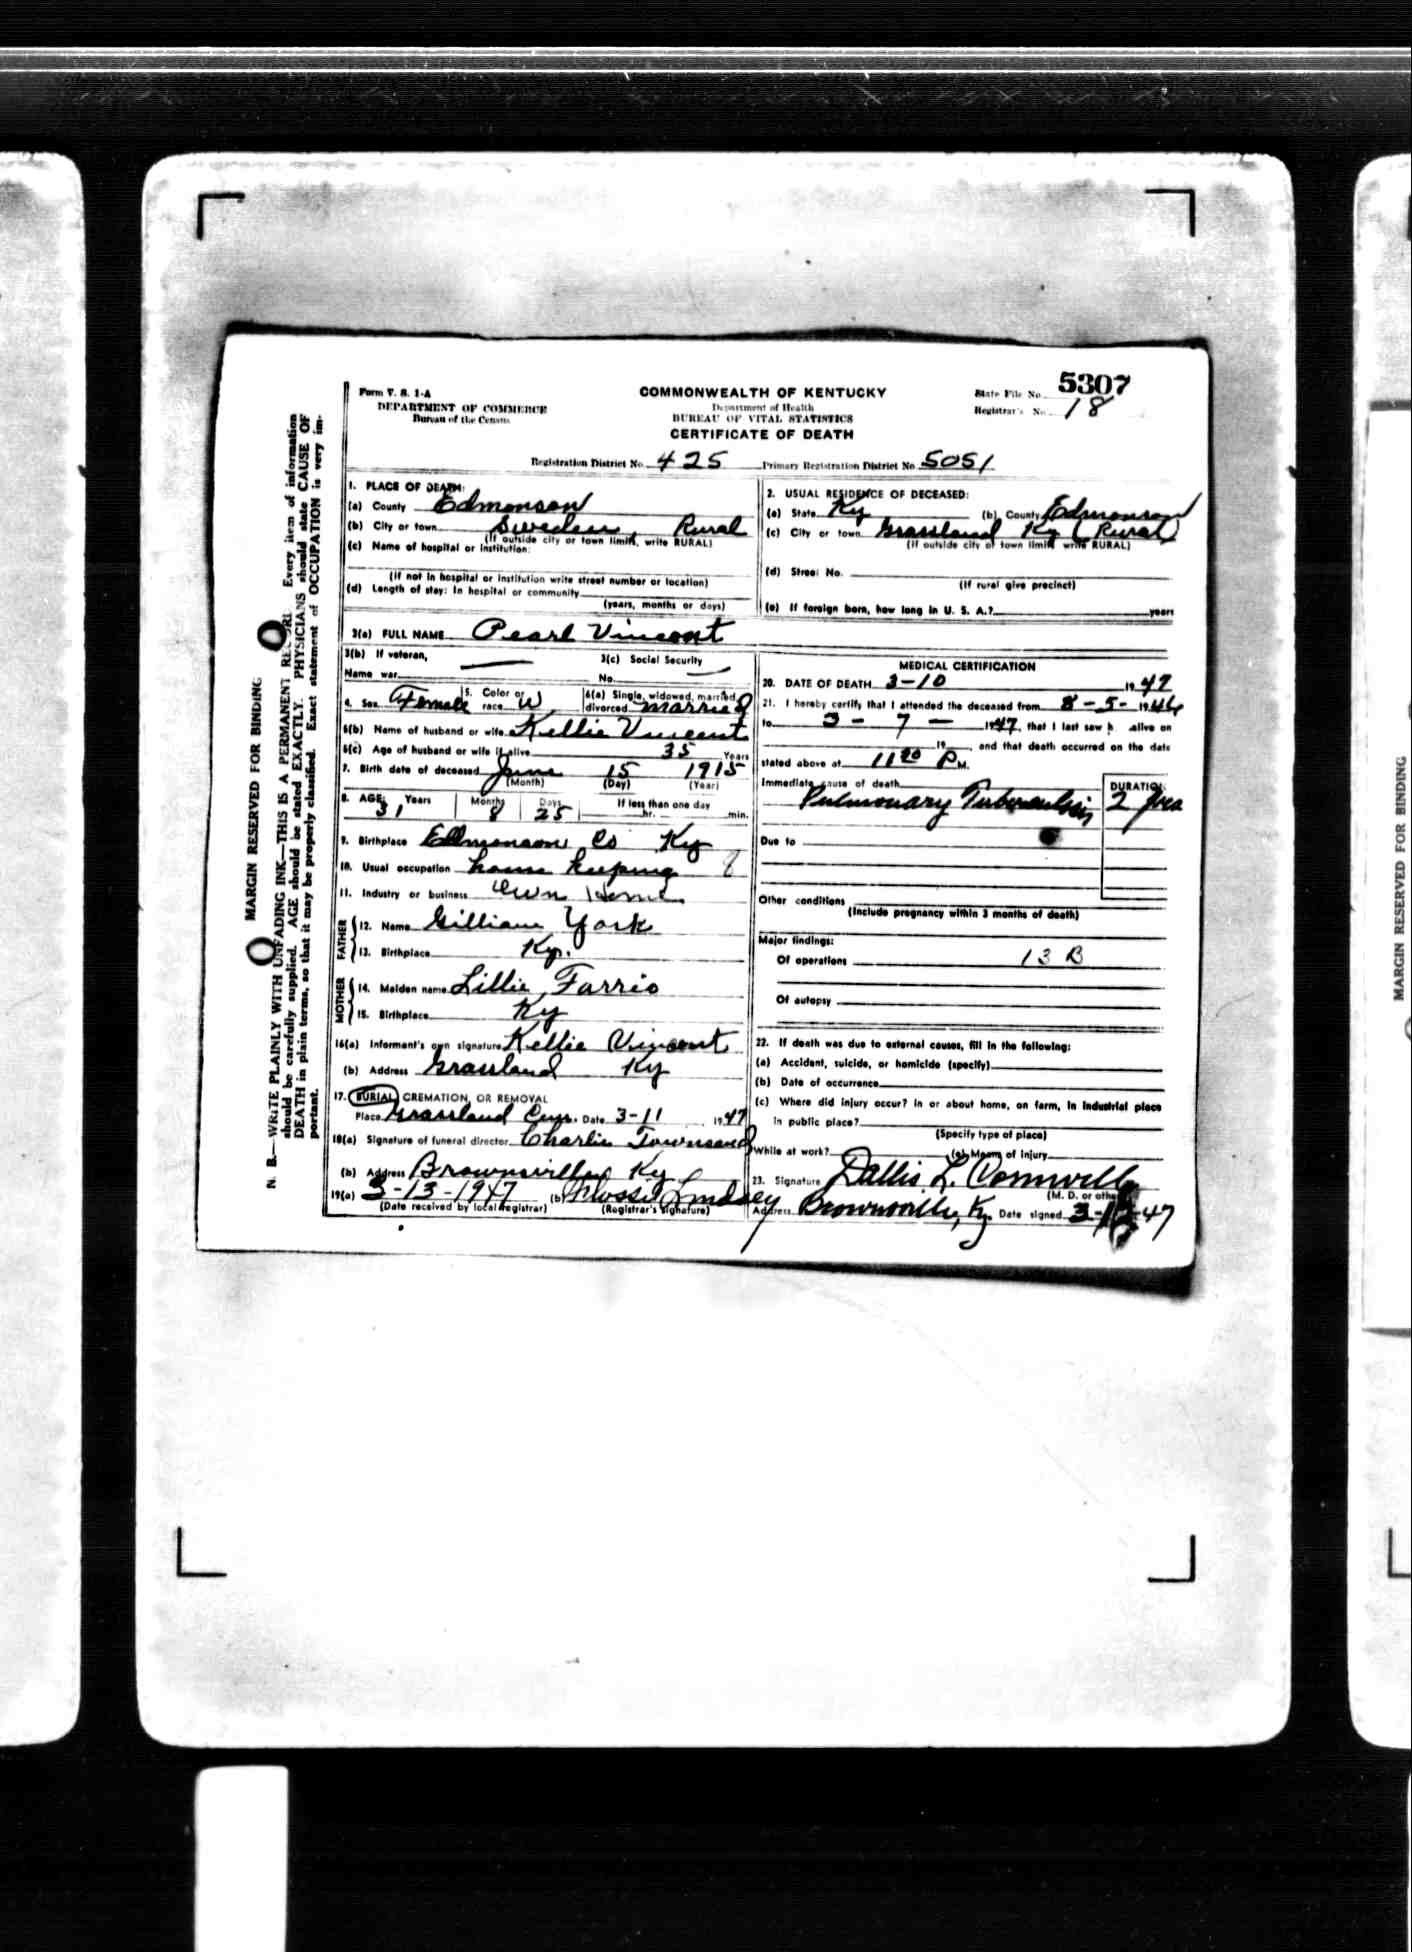 Form V. S. 1-A
DEPARTMENT OF COMMERCE
Bureau of the Census
COMMONWEALTH OF KENTUCKY
Department of Health
BUREAU OF VITAL STATISTICS
CERTIFICATE OF DEATH
State File No. 5307
Registrar's No. 18
Registration District No. 425 Primary Registration District No. 5051
1. PLACE OF DEATH:
(a) County Edmonson
(b) City or town Sweden, Rural
(If outside city or town limits, write RURAL)
(c) Name of hospital or institution:
(If not in hospital or institution write street number or location)
(d) Length of stay: In hospital or community
(years, months or days)
2. USUAL RESIDENCE OF DECEASED:
(a) State Ky (b) County Edmonson
(c) City or town Grassland Ky (Rural)
(If outside city or town limits write RURAL)
(d) Street No.
(If rural give precinct)
(e) If foreign born, how long in U. S. A.? years
3(a) FULL NAME Pearl Vincent
3(b) If veteran,
Name war
3(c) Social Security
No.
4. Sex Female 5. Color or race W 6(a) Single, widowed, married, divorced married
6(b) Name of husband or wife Kellie Vincent
6(c) Age of husband or wife if alive 35 Years
7. Birth date of deceased June 15 1915
(Month) (Day) (Year)
8. AGE: Years Months Days If less than one day
31 8 25 hr. min.
9. Birthplace Edmonson Co Ky
10. Usual occupation house keeping 8
11. Industry or business Own Home
FATHER
12. Name Gilliam York
13. Birthplace Ky.
MOTHER
14. Maiden name Lillie Farris
15. Birthplace Ky
16(a) Informent's own signature Kellie Vincent
(b) Address Grassland Ky
17. BURIAL, CREMATION, OR REMOVAL
Place Grassland Cem. Date 3-11 1947
18(a) Signature of funeral director Charlie Townsend
(b) Address Brownsville Ky
19(a) 3-13-1947 (b) Flossie Lindsey
(Date received by local registrar) (Registrar's signature)
MEDICAL CERTIFICATION
20. DATE OF DEATH 3-10 1947
21. I hereby certify that I attended the deceased from 8-5-1946
to 3-7- 1947, that I last saw h alive on
19 , and that death occurred on the date
stated above at 11 20 P M.
Immediate cause of death DURATION
Pulmonary Tuberculosis 2 yrs
Due to
Other conditions
(Include pregnancy within 3 months of death)
Major findings:
Of operations 13 B
Of autopsy
22. If death was due to external causes, fill in the following:
(a) Accident, suicide, or homicide (specify)
(b) Date of occurrence
(c) Where did injury occur? In or about home, on farm, in industrial place
in public place?
(Specify type of place)
While at work? (e) Means of injury
23. Signature Dallis L. Cornwell
(M. D. or other)
Address Brownsville, Ky. Date signed
MARGIN RESERVED FOR BINDING
N. B.—WRITE PLAINLY WITH UNFADING INK—THIS IS A PERMANENT RECORD. Every item of information
should be carefully supplied. AGE should be stated EXACTLY. PHYSICIANS should state CAUSE OF
DEATH in plain terms, so that it may be properly classified. Exact statement of OCCUPATION is very im-
portant.
MARGIN RESERVED FOR BINDING